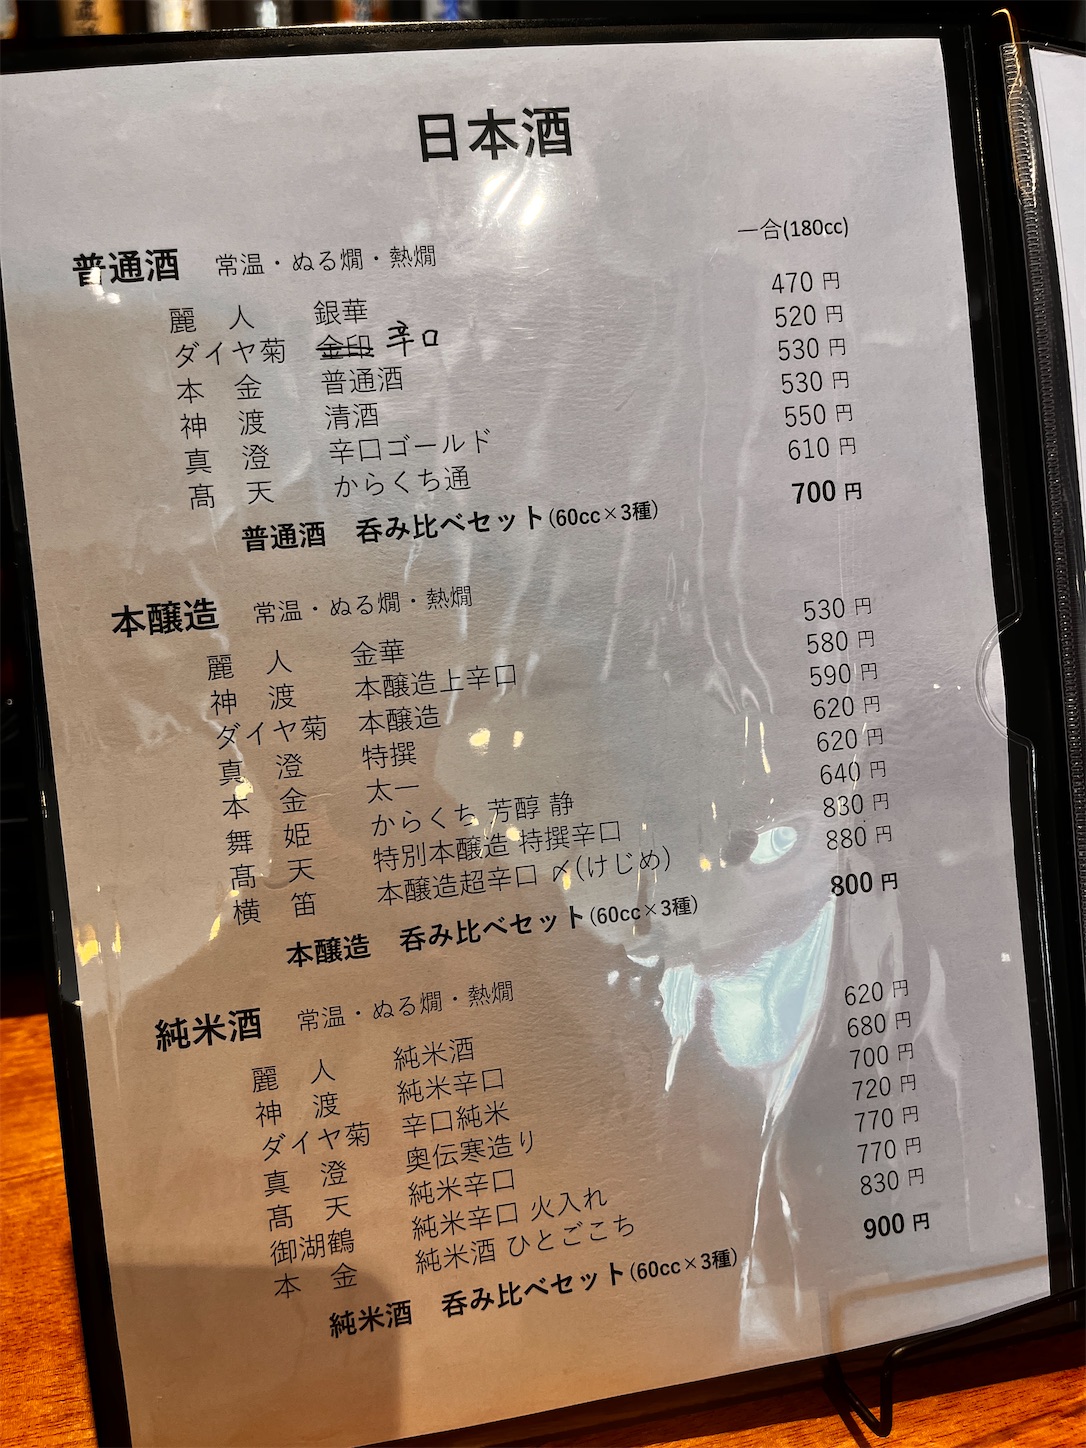 日本酒
一合(180cc)
普通酒 常温・ぬる燗・熱燗
麗人 銀華 470円
ダイヤ菊 金印 辛口 520円
本金 普通酒 530円
神渡 清酒 530円
真澄 辛口ゴールド 550円
髙天 からくち通 610円
普通酒 呑み比べセット(60cc×3種) 700円
本醸造 常温・ぬる燗・熱燗
麗人 金華 530円
神渡 本醸造上辛口 580円
ダイヤ菊 本醸造 590円
真澄 特撰 620円
本金 太一 620円
舞姫 からくち 芳醇 静 640円
髙天 特別本醸造 特撰辛口 830円
横笛 本醸造超辛口 〆(けじめ) 880円
本醸造 呑み比べセット(60cc×3種) 800円
純米酒 常温・ぬる燗・熱燗
麗人 純米酒 620円
神渡 純米辛口 680円
ダイヤ菊 辛口純米 700円
真澄 奥伝寒造り 720円
髙天 純米辛口 770円
御湖鶴 純米辛口 火入れ 770円
本金 純米酒 ひとごこち 830円
純米酒 呑み比べセット(60cc×3種) 900円